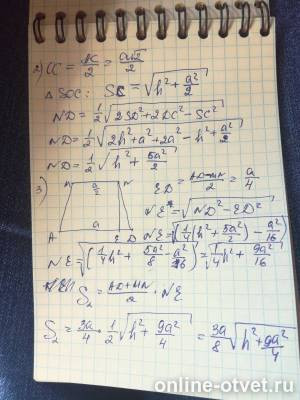 2) OC = AC/2 = a√2/2
△ SOC: SC = √(h² + a²/2)
ND = 1/2 √(2SD² + 2DC² - SC²)
ND = 1/2 √(2h² + a² + 2a² - h² + a²/2)
ND = 1/2 √(h² + 5a²/2)
3) M a/2 N ED = (AD-MN)/2 = a/4
NE = √(ND² - ED²)
A a E D NE = √(1/4(h² + 5a²/2) - a²/16)
NE = √(1/4h² + 5a²/8 - a²/16) = √(1/4h² + 9a²/16)
S₂ = (AD+MN)/2 · NE
S₂ = 3a/4 · 1/2 √(h² + 9a²/4) = 3a/8 √(h² + 9a²/4)
online-otvet.ru